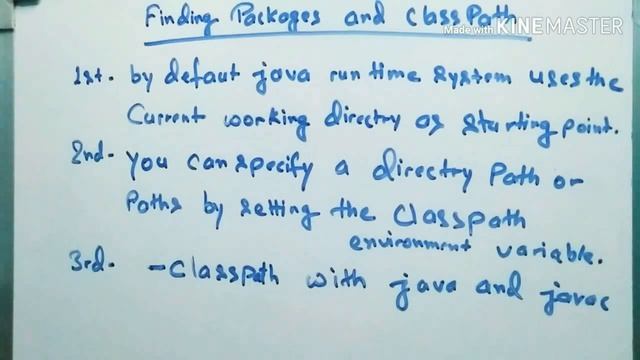 Finding Packages and ClassPath
Made with KINEMASTER
1st. by defaut java run time system uses the
Current working directry as starting point.
2nd- You can specify a directry Path or
Paths by setting the Classpath
environment variable.
3rd. - Classpath with java and javac